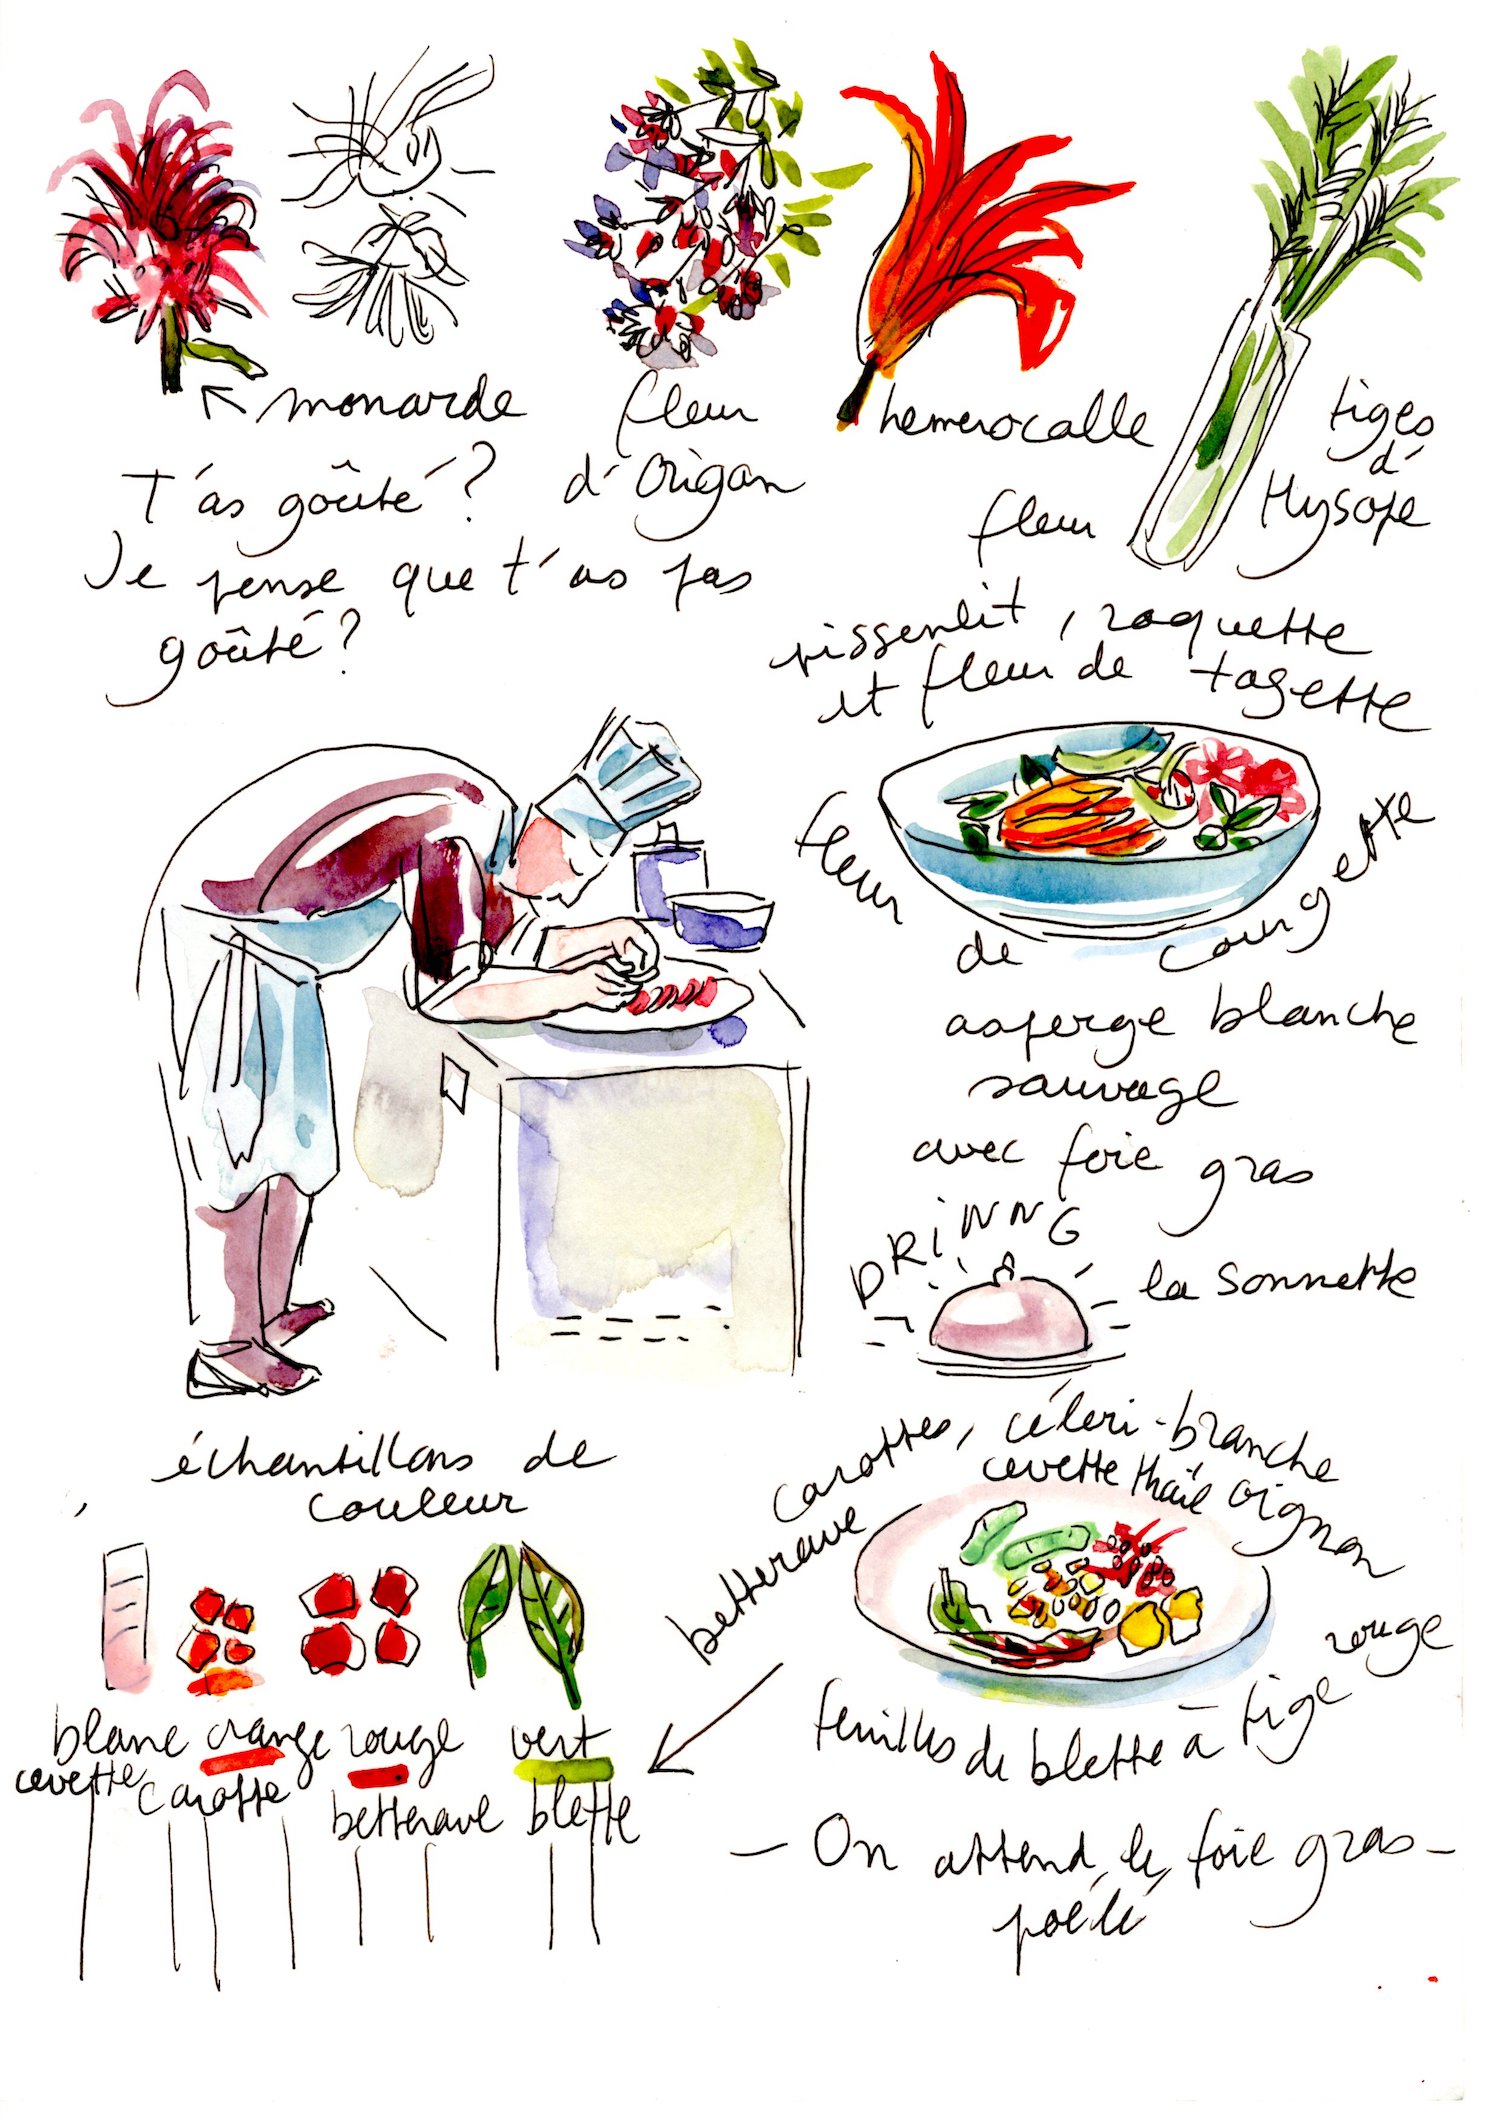 monarde
T'as goûté ?
Je pense que t'as pas
goûté ?
fleur
d'Origan
hemerocalle
tiges
d'
Hysope
fleur
pissenlit, roquette
et fleur de tagette
fleur de courgette
asperge blanche
sauvage
avec foie gras
DRiNNG
la sonnette
échantillons de
couleur
blanc orange rouge vert
cevette carotte betterave blette
carottes, céleri-branche
cevette thaïe oignon
betterave
feuilles de blette à tige rouge
— On attend le foie gras —
poêlé